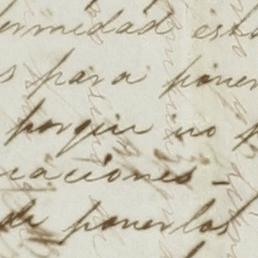 ermedad est
s para poner
porque no p
caciones -
de ponerlos